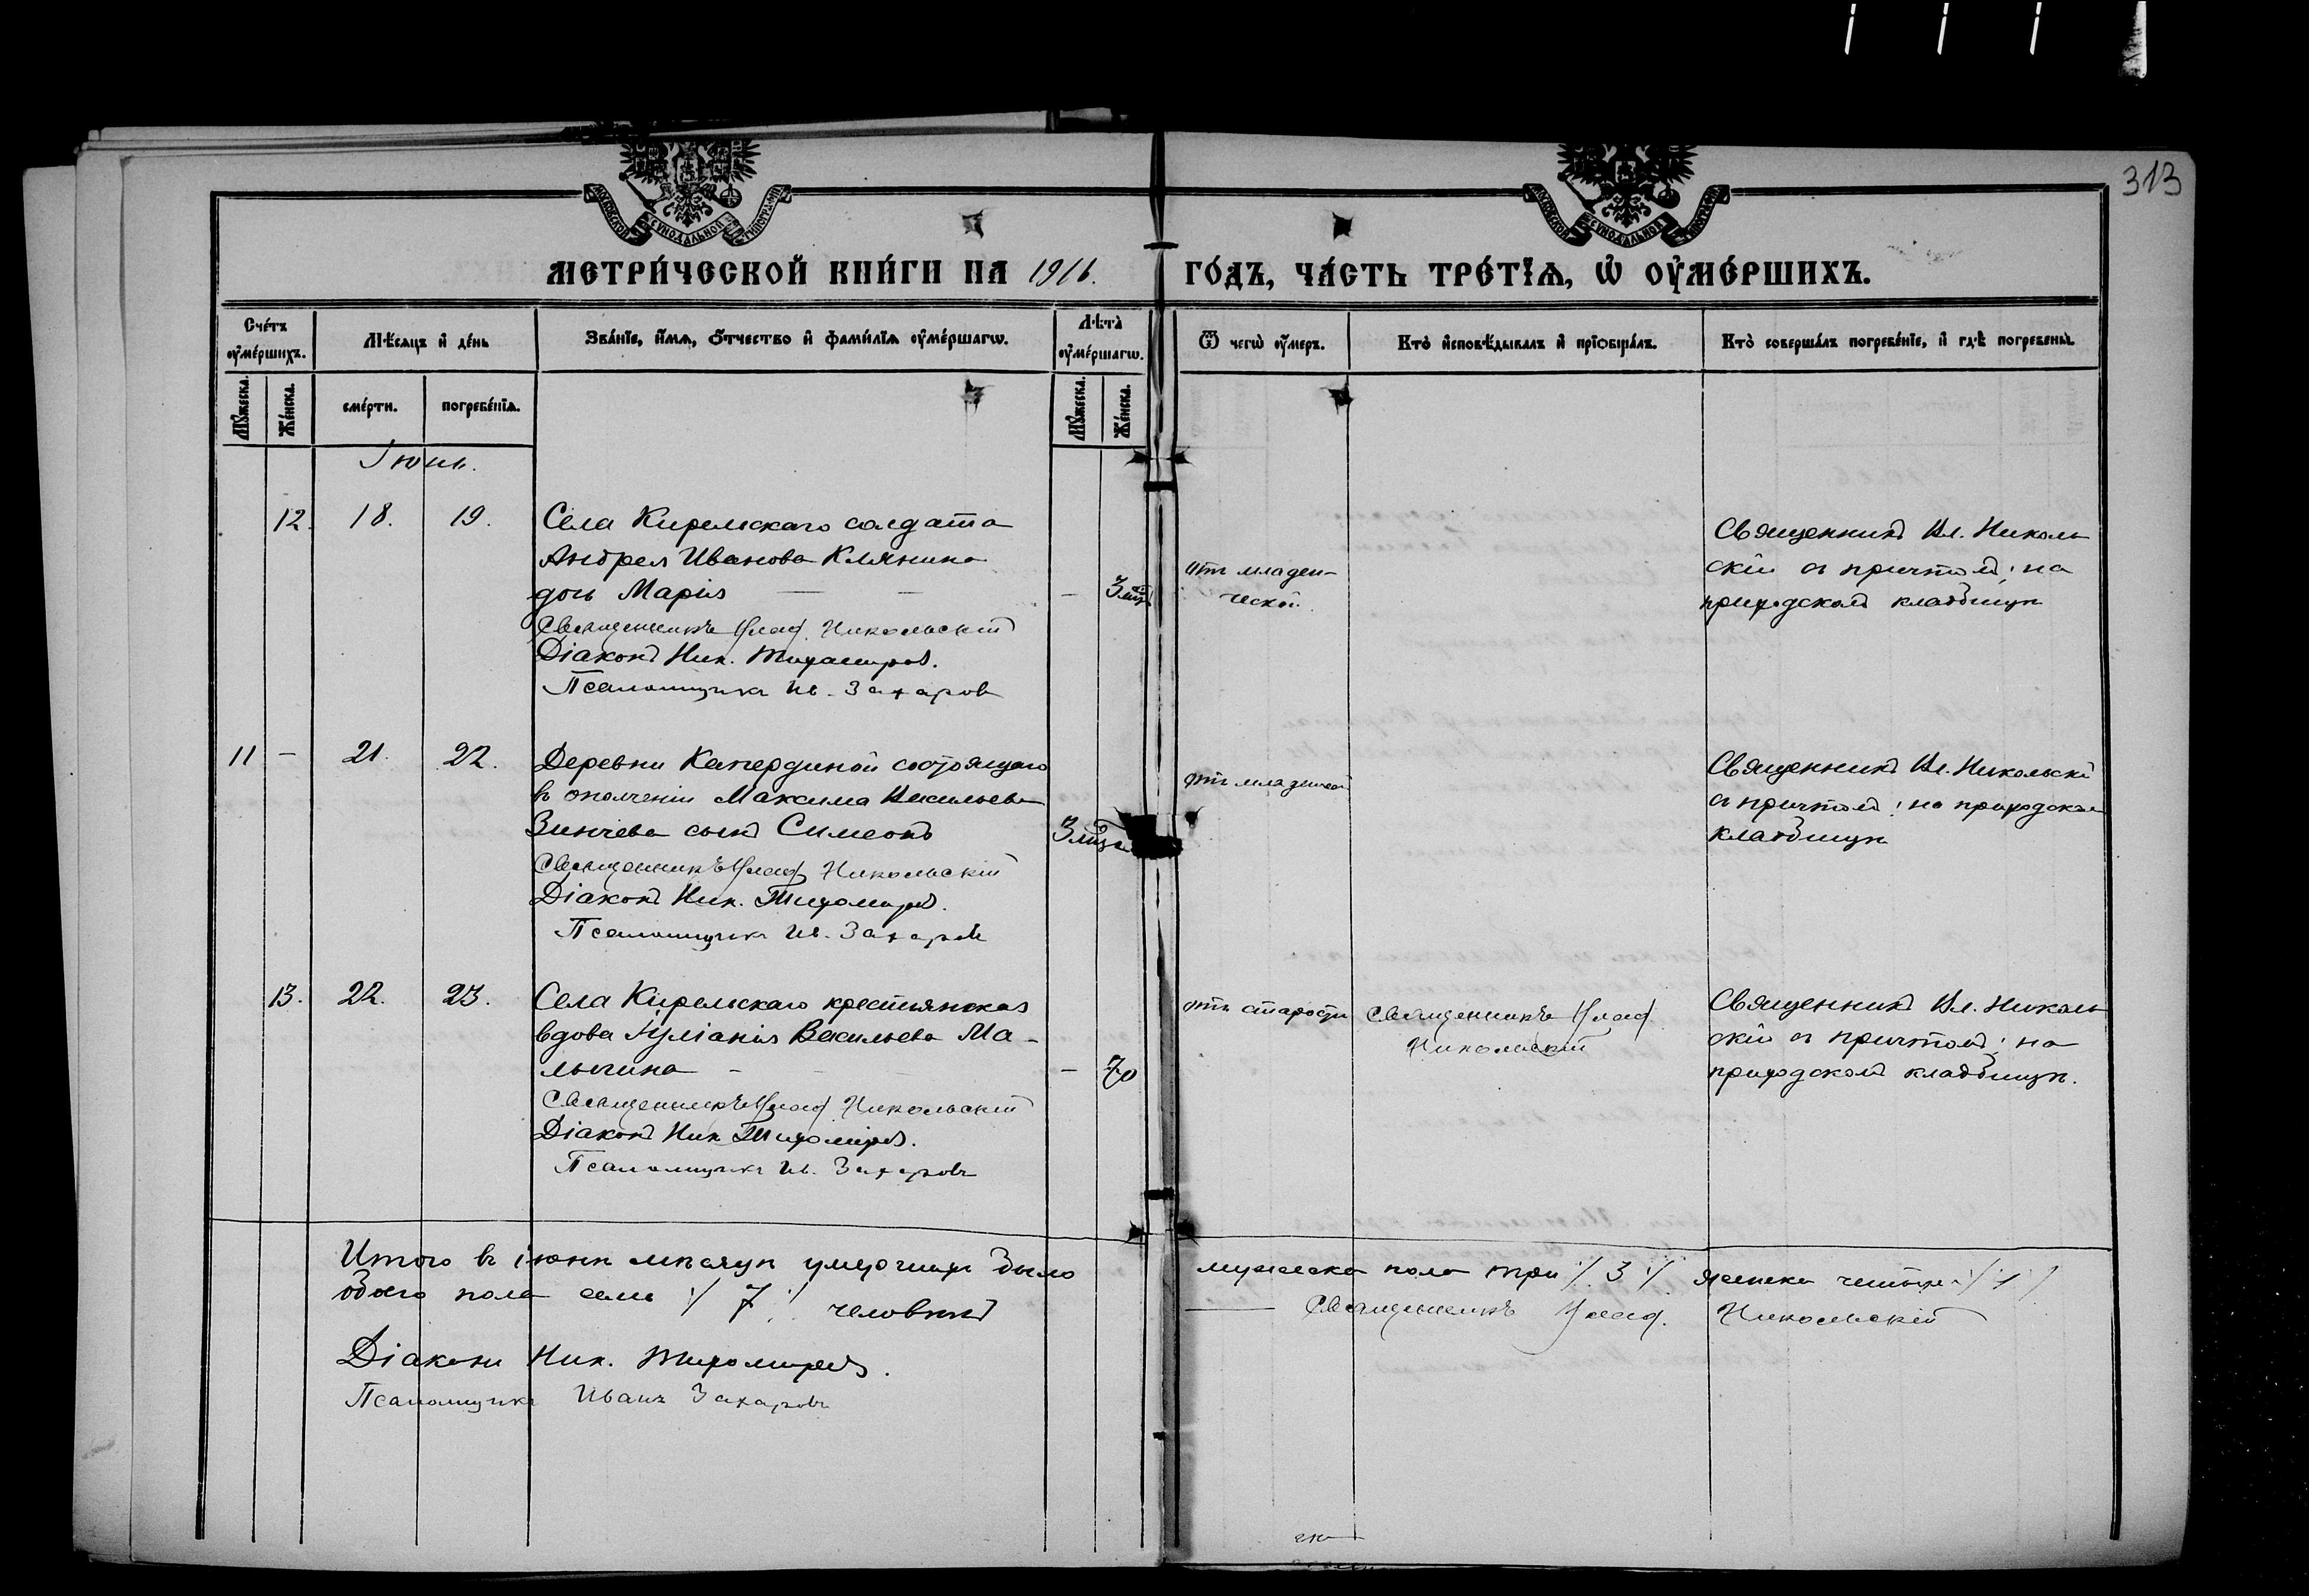 313
МЕТРИ́ЧЕСКОЙ КНИ́ГИ НА 1916. ГО́ДЪ, ЧА́СТЬ ТРЕ́ТЇѦ, Ѡ҆ ОУ҆МЕ́РШИХЪ.
Сче́тъ оу҆ме́ршихъ.
Мѣ́сѧцъ и҆ де́нь
Зва́нїе, и҆́мѧ, ѻ҆́тчество и҆ фами́лїѧ оу҆ме́ршагѡ.
Лѣ́та оу҆ме́ршагѡ.
Ѿ чегѡ̀ оу҆́меръ.
Кто̀ и҆сповѣ́дывалъ и҆ прїѡбща́лъ.
Кто̀ соверша́лъ погребе́нїе, и҆ гдѣ̀ погребены̀.
Мꙋ́жеска.
Же́нска.
сме́рти.
погребе́нїѧ.
Мꙋ́жеска.
Же́нска.
Іюнь.
12. 18. 19.
Села Кирельскаго солдата
Андрея Иванова Клянина
дочь Марія
Священникъ Влад. Никольскій
Діаконъ Ник. Тихомировъ.
Псаломщикъ Ив. Захаровъ
— 3 мѣс
отъ младен-
ческой.
Священникъ Вл. Николь
скій съ причтомъ; на
приходскомъ кладбищѣ
11 — 21. 22.
Деревни состоящаго
въ ополченіи Максима Васильева
Зинчева сынъ Симеонъ
Священникъ Влад. Никольскій
Діаконъ Ник. Тихомировъ.
Псаломщикъ Ив. Захаровъ
3 мѣс
отъ младенческой
Священникъ Вл. Никольскій
съ причтомъ; на приходскомъ
кладбищѣ
13. 22. 23.
Села Кирельскаго крестьянская
вдова Іуліанія Васильева Ма-
лыгина —
Священникъ Влад. Никольскій
Діаконъ Ник. Тихомировъ.
Псаломщикъ Ив. Захаровъ
— 70
отъ старости
Священникъ Влад.
Никольскій
Священникъ Вл. Николь
скій съ причтомъ; на
приходскомъ кладбищѣ.
Итого въ іюнѣ мѣсяцѣ умершихъ было
обоего пола семь /7/ человѣкъ
мужеска пола три /3/ женска четыре /4/
Священникъ Влад. Никольскій
Діаконъ Ник. Тихомировъ.
Псаломщикъ Иванъ Захаровъ